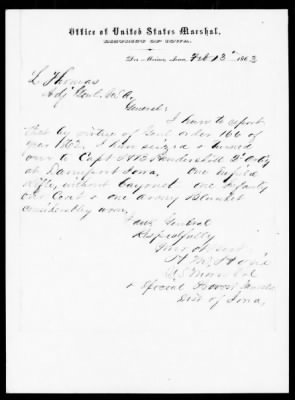 Office of United States Marshal,
DISTRICT OF IOWA.
Des Moines, Iowa, Feb 13" 1863
L. Thomas
Adj Genl. U.S.A.
General:
I have to report
that by virtue of Genl order 166 of
year 1862. I have seized & turned
over to Capt
at Davenport Iowa. One Enfield
rifle, without bayonet one infantry
over Coat & one army Blanket
considerably worn,
I am General
Respectfully
Your obt Servt.
H. M. Hoxie
U.S. Marshal
& Special Provost Marshal
Dist of Iowa,